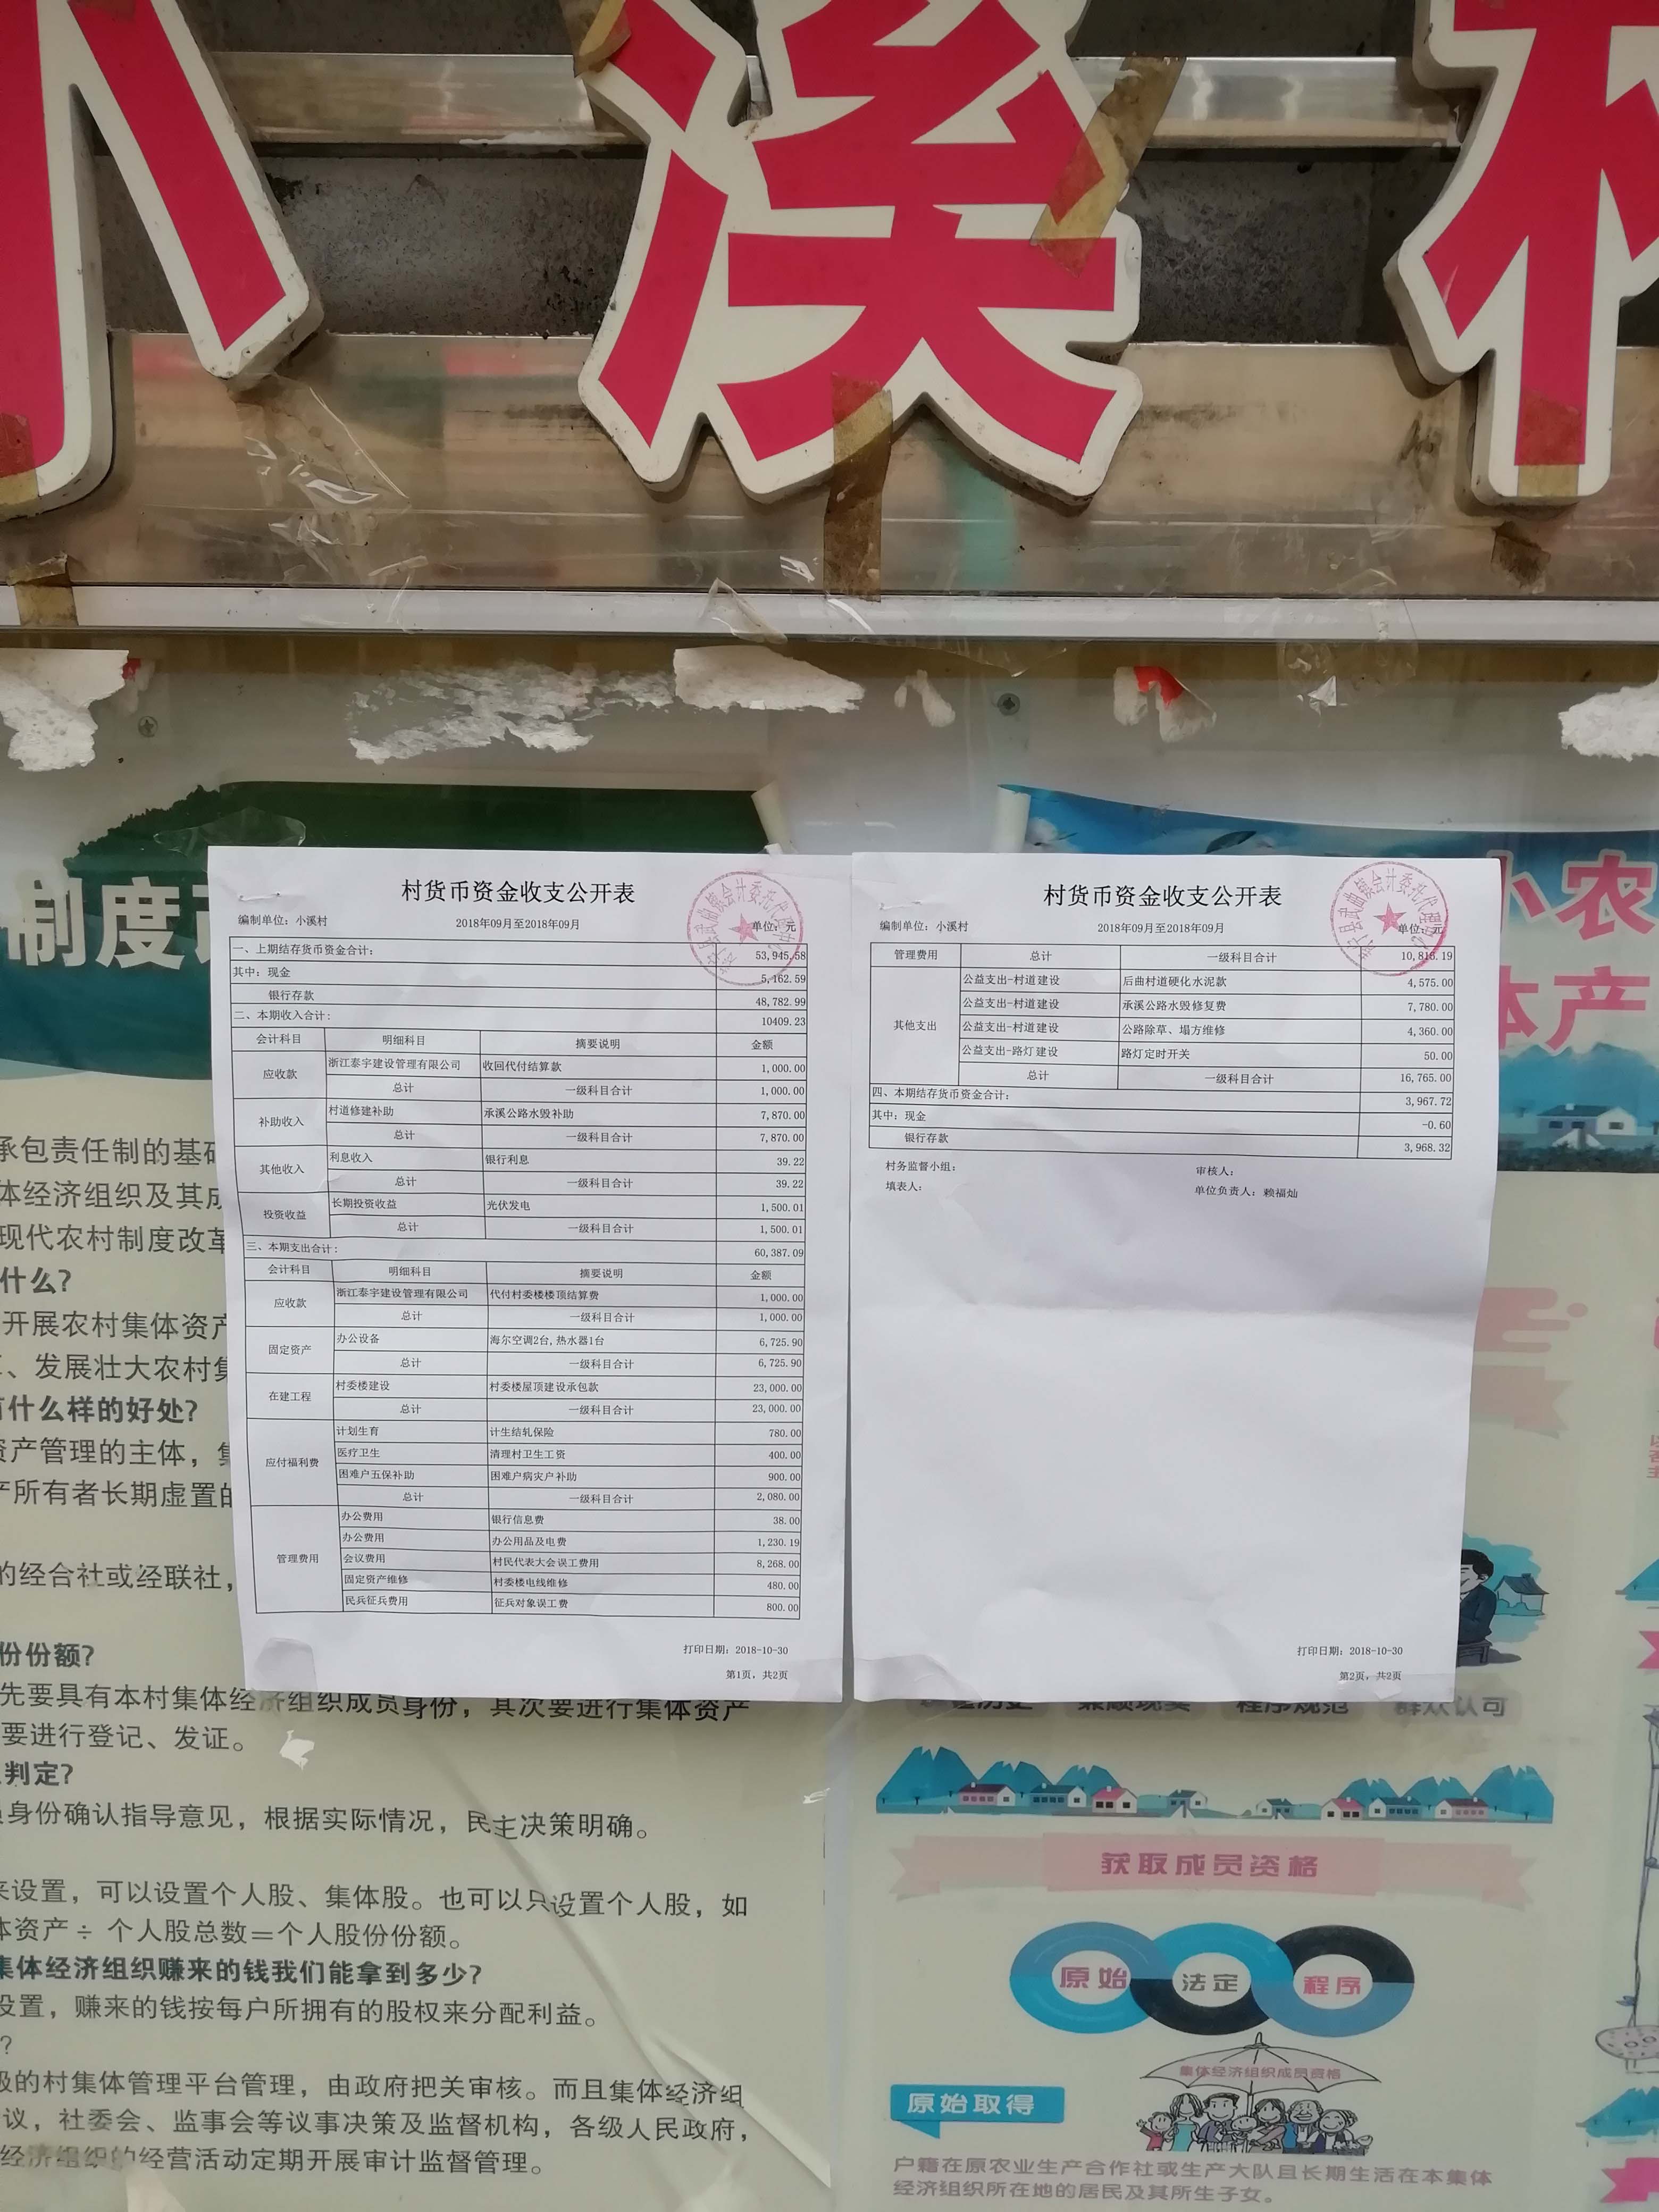 小溪村
制度改
村货币资金收支公开表
编制单位：小溪村 2018年09月至2018年09月 单位：元
一、上期结存货币资金合计： 53,945.58
其中：现金 5,162.59
银行存款 48,782.99
二、本期收入合计： 10409.23
会计科目 明细科目 摘要说明 金额
应收款 浙江泰宇建设管理有限公司 收回代付结算款 1,000.00
总计 一级科目合计 1,000.00
补助收入 村道修建补助 承溪公路水毁补助 7,870.00
总计 一级科目合计 7,870.00
其他收入 利息收入 银行利息 39.22
总计 一级科目合计 39.22
投资收益 长期投资收益 光伏发电 1,500.01
总计 一级科目合计 1,500.01
三、本期支出合计： 60,387.09
会计科目 明细科目 摘要说明 金额
应收款 浙江泰宇建设管理有限公司 代付村委楼楼顶结算费 1,000.00
总计 一级科目合计 1,000.00
固定资产 办公设备 海尔空调2台,热水器1台 6,725.90
总计 一级科目合计 6,725.90
在建工程 村委楼建设 村委楼屋顶建设承包款 23,000.00
总计 一级科目合计 23,000.00
应付福利费 计划生育 计生结轧保险 780.00
医疗卫生 清理村卫生工资 400.00
困难户五保补助 困难户病灾户补助 900.00
总计 一级科目合计 2,080.00
管理费用 办公费用 银行信息费 38.00
办公费用 办公用品及电费 1,230.19
会议费用 村民代表大会误工费用 8,268.00
固定资产维修 村委楼电线维修 480.00
民兵征兵费用 征兵对象误工费 800.00
打印日期：2018-10-30
第1页，共2页
村货币资金收支公开表
编制单位：小溪村 2018年09月至2018年09月 单位：元
管理费用 总计 一级科目合计 10,816.19
其他支出 公益支出-村道建设 后曲村道硬化水泥款 4,575.00
公益支出-村道建设 承溪公路水毁修复费 7,780.00
公益支出-村道建设 公路除草、塌方维修 4,360.00
公益支出-路灯建设 路灯定时开关 50.00
总计 一级科目合计 16,765.00
四、本期结存货币资金合计： 3,967.72
其中：现金 -0.60
银行存款 3,968.32
村务监督小组： 审核人：
填表人： 单位负责人：赖福灿
打印日期：2018-10-30
第2页，共2页
小农
体产
承包责任制的基础
体经济组织及其成
现代农村制度改革
什么?
开展农村集体资产
、发展壮大农村集
有什么样的好处?
资产管理的主体，集
产所有者长期虚置的
的经合社或经联社，
份份额?
先要具有本村集体经济组织成员身份，其次要进行集体资产
要进行登记、发证。
判定?
身份确认指导意见，根据实际情况，民主决策明确。
来设置，可以设置个人股、集体股。也可以只设置个人股，如
体资产÷个人股总数＝个人股份份额。
集体经济组织赚来的钱我们能拿到多少?
设置，赚来的钱按每户所拥有的股权来分配利益。
?
级的村集体管理平台管理，由政府把关审核。而且集体经济组
议，社委会、监事会等议事决策及监督机构，各级人民政府，
经济组织的经营活动定期开展审计监督管理。
程序规范 群众认可
获取成员资格
原始 法定 程序
集体经济组织成员资格
原始取得
户籍在原农业生产合作社或生产大队且长期生活在本集体
经济组织所在地的居民及其所生子女。